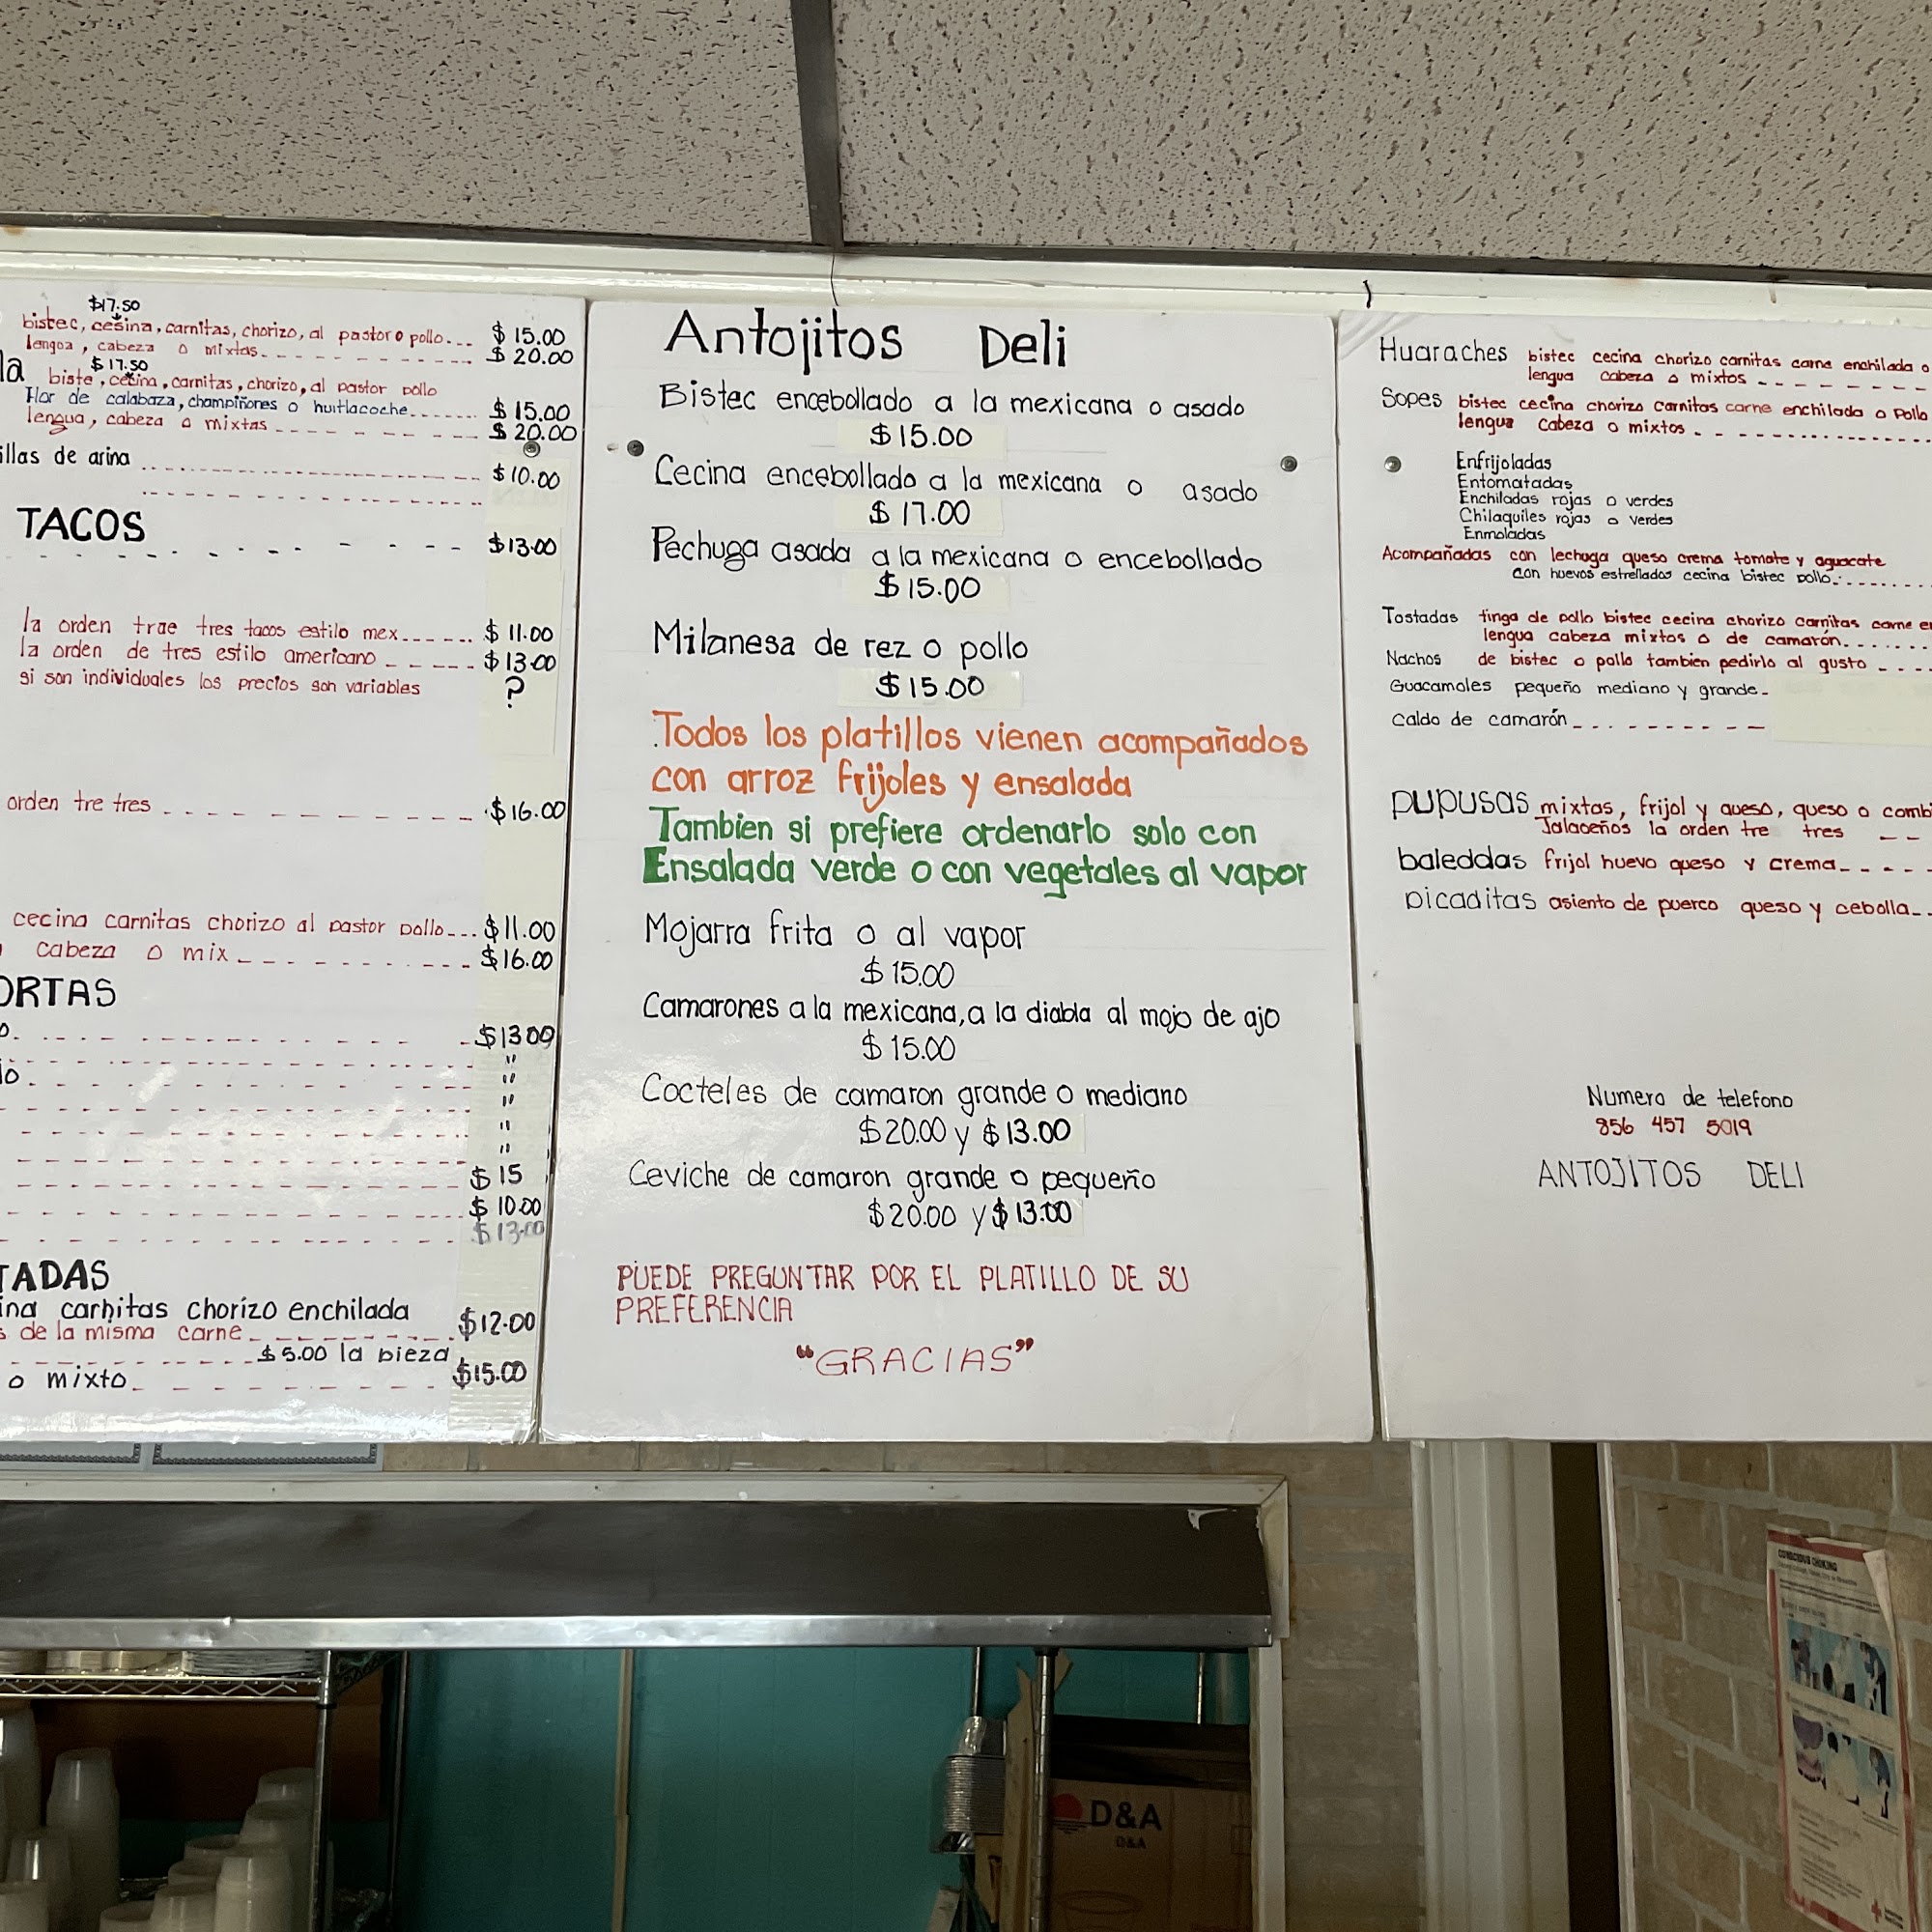 $17.50
bistec, cesina, carnitas, chorizo, al pastor o pollo... $15.00
lengoa, cabeza o mixtas $20.00
$17.50
la biste, cecina, carnitas, chorizo, al pastor pollo
flor de calabaza, champiñones o huitlacoche $15.00
lengua, cabeza o mixtas $20.00
illas de arina $10.00
TACOS
$13.00
la orden trae tres tacos estilo mex $11.00
la orden de tres estilo americano $13.00
si son individuales los precios son variables ?
orden tre tres $16.00
cecina carnitas chorizo al pastor pollo $11.00
cabeza o mix $16.00
ORTAS
o. $13 00
"
"
"
"
"
$15
$10.00
$13.00
TADAS
ina carnitas chorizo enchilada
s de la misma carne $12.00
$5.00 la pieza
o mixto $15.00
Antojitos Deli
Bistec encebollado a la mexicana o asado
$15.00
Cecina encebollado a la mexicana o asado
$17.00
Pechuga asada a la mexicana o encebollado
$15.00
Milanesa de rez o pollo
$15.00
Todos los platillos vienen acompañados
con arroz frijoles y ensalada
Tambien si prefiere ordenarlo solo con
Ensalada verde o con vegetales al vapor
Mojarra frita o al vapor
$15.00
Camarones a la mexicana, a la diabla al mojo de ajo
$15.00
Cocteles de camaron grande o mediano
$20.00 y $13.00
Ceviche de camaron grande o pequeño
$20.00 y $13.00
PUEDE PREGUNTAR POR EL PLATILLO DE SU
PREFERENCIA
"GRACIAS"
Huaraches bistec cecina chorizo carnitas carne enchilada o
lengua cabeza o mixtos
Sopes bistec cecina chorizo carnitas carne enchilada o Pollo
lengua cabeza o mixtos
Enfrijoladas
Entomatadas
Enchiladas rojas o verdes
Chilaquiles rojas o verdes
Enmoladas
Acompañadas con lechuga queso crema tomate y aguacate
con huevos estrellados cecina bistec pollo
Tostadas tinga de pollo bistec cecina chorizo carnitas carne en
lengua cabeza mixtos o de camarón
Nachos de bistec o pollo tambien pedirlo al gusto
Guacamoles pequeño mediano y grande
caldo de camarón
pupusas mixtas, frijol y queso, queso o combi
Jalapeños la orden tre tres
baleddas frijol huevo queso y crema
picaditas asiento de puerco queso y cebolla
Numero de telefono
856 457 5019
ANTOJITOS DELI
CONSCIOUS CHOKING
D&A
D&A